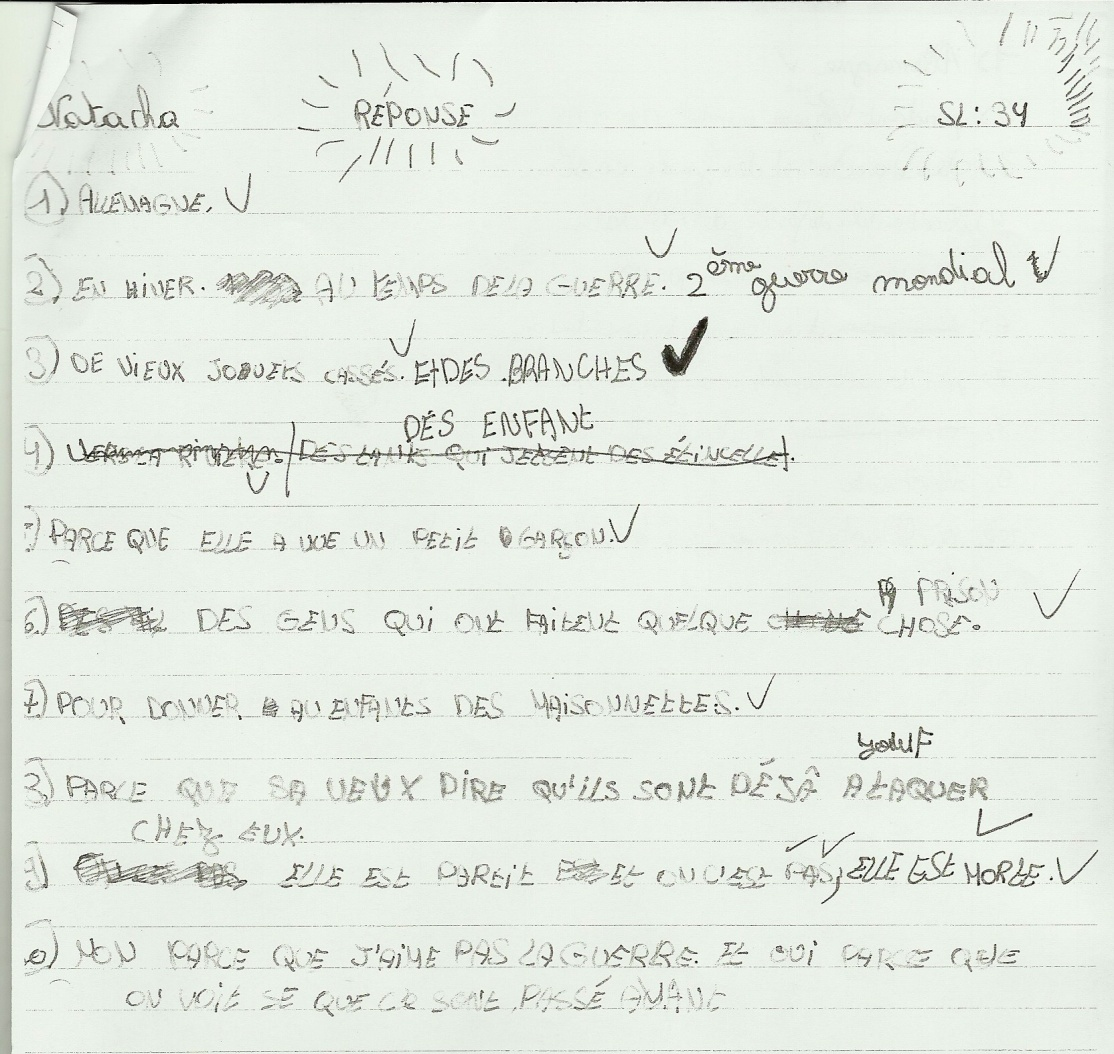 Natacha RÉPONSE SL: 34
1) ALLEMAGNE.
2) EN HIVER. AU TEMPS DE LA GUERRE. 2ème guerre mondial
3) DE VIEUX JOQUETS CASSÉS. ET DES BRANCHES
DES ENFANT
4) VERS LA DES QUI JETTENT DES ÉTINCELLE.
) PARCE QUE ELLE A VUE UN PETIT GARÇON.
PRISON
6) DES GENS QUI ONT FAITENT QUELQUE CHOSE.
7) POUR DONNER AU ENFANTS DES MAISONNETTES.
youf
) PARCE QUE SA VEUX DIRE QU'ILS SONT DÉJÂ ATAQUER
CHEZ EUX.
) ELLE EST PARTIT ET ON PAS, ELLE EST MORTE.
) NON PARCE QUE J'AIME PAS LA GUERRE. ET OUI PARCE QUE
ON VOIT SE QUE SONT PASSÉ AVANT